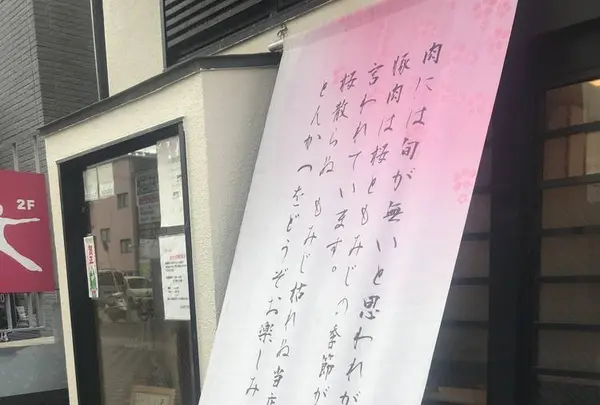 肉には旬が無いと思われが
豚肉は桜ともみじの季節が
言われています。
桜散らぬもみじ枯れぬ当店
とんかつをどうぞお楽しみ
2F